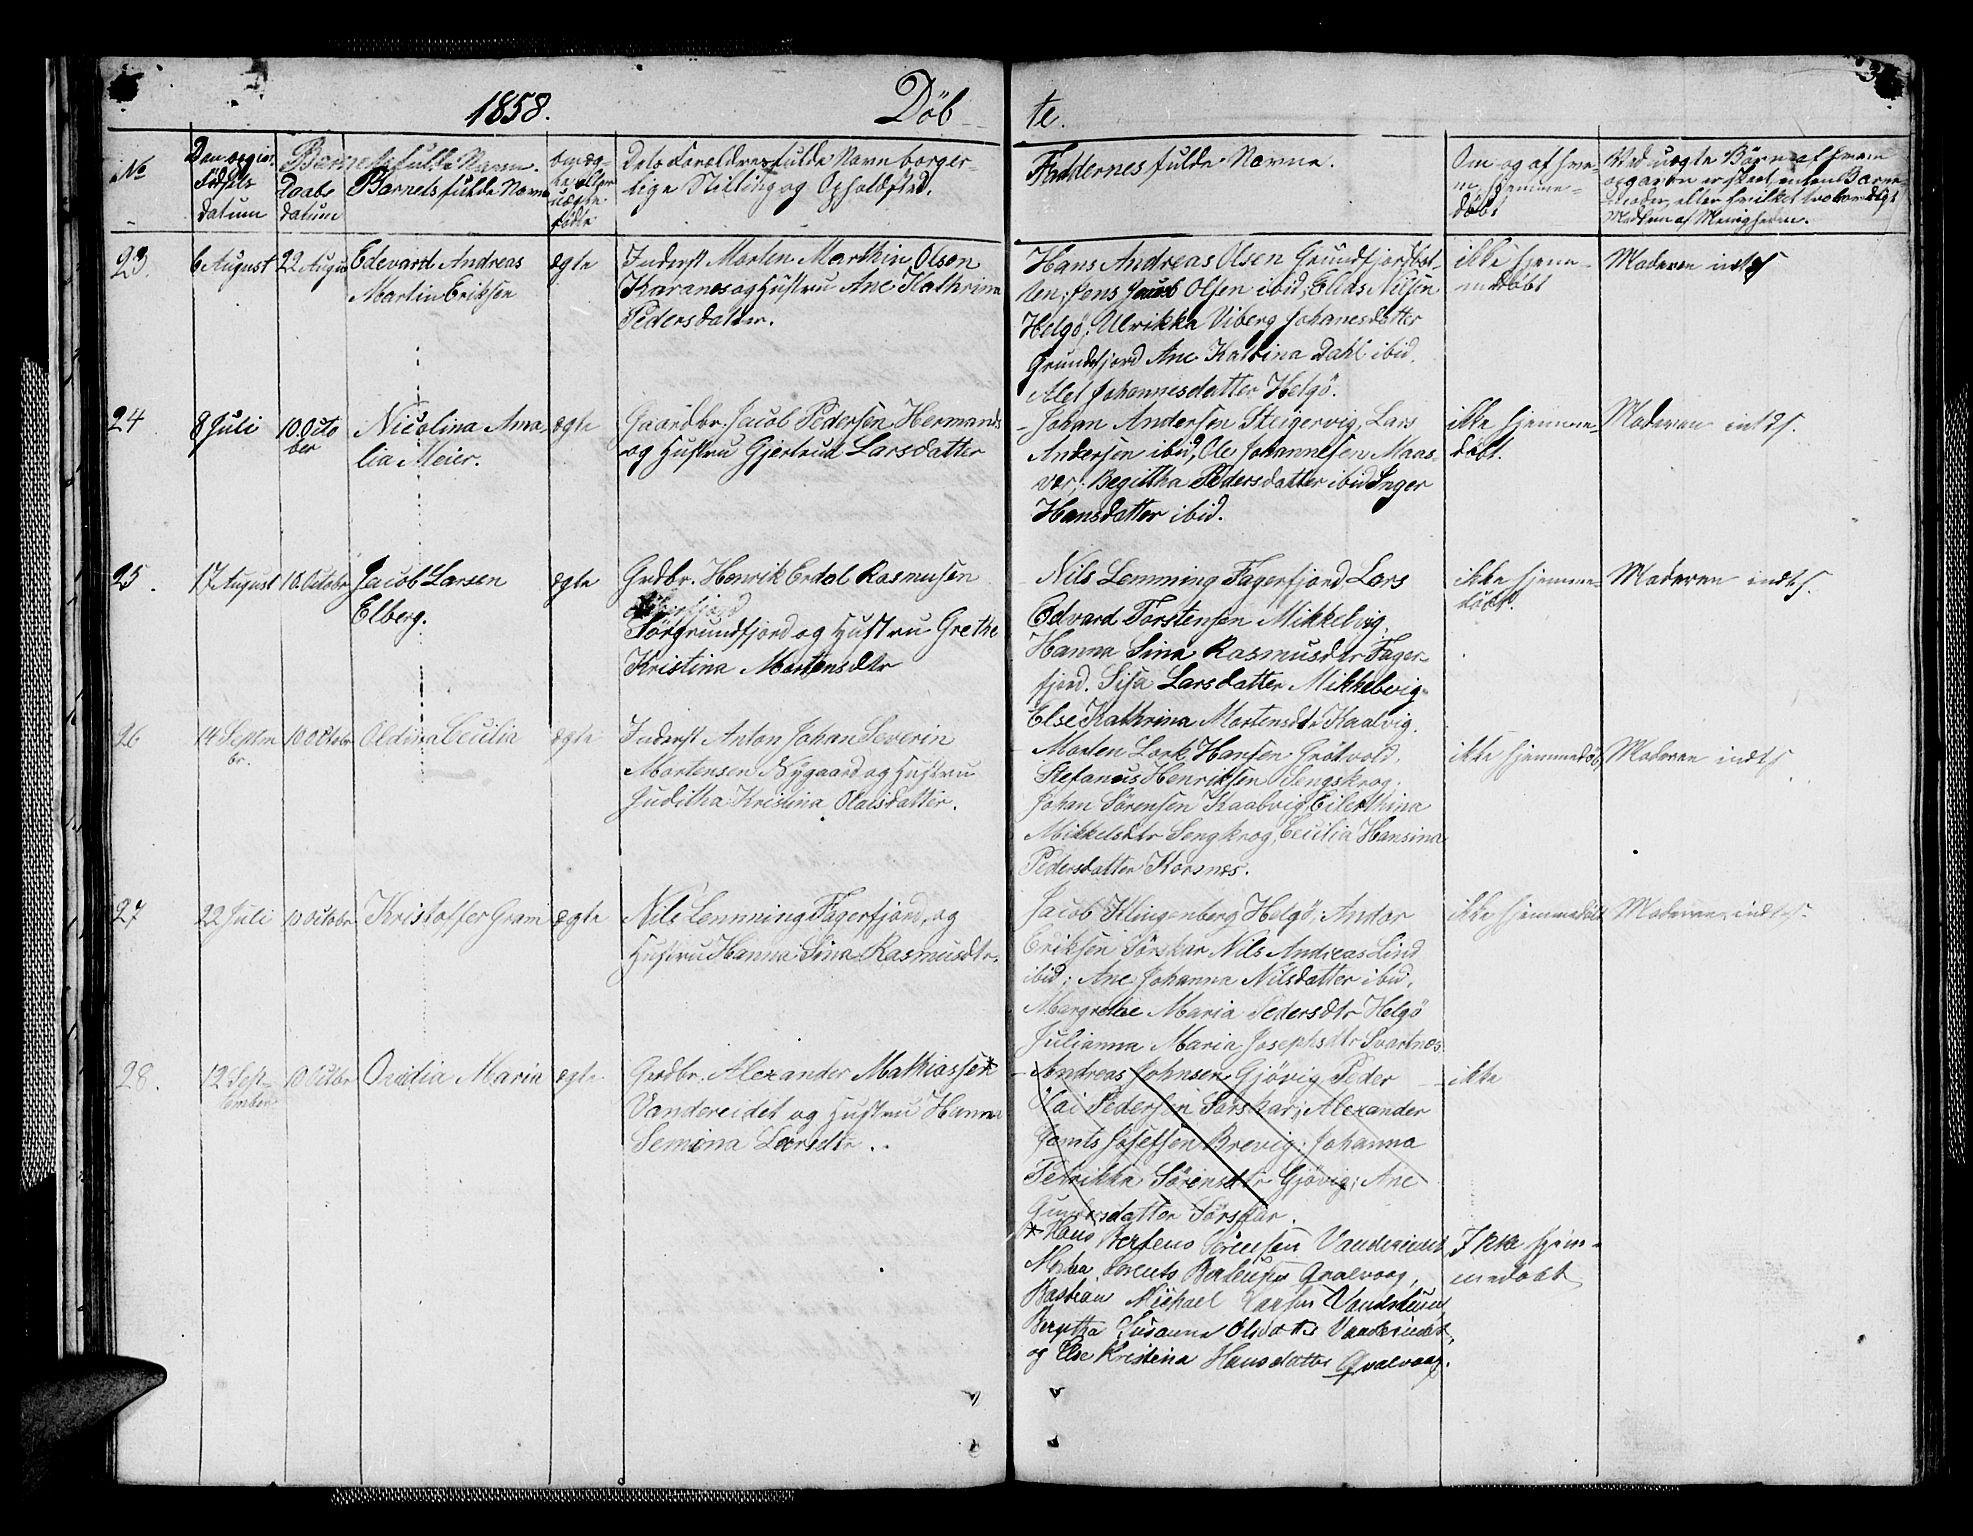 1858. Döb te.
№
Fødsels
datum
Daabs
datum
Barnets fulde Navn
Dets Forældres fulde Navn borger-
lige Stilling og Opholdssted.
Faddernes fulde Navne.
Om og af hvem
hjemme-
døbt
23. 6 August 22 August Edevard Andreas
Martin Eriksen
ægte
Inderst Morten Marthin Olsen
Karanes og Hustru Ane Kathrina
Pedersdatter.
Hans Andreas Olsen Grundfjordbot-
ten; Jens Jacob Olsen ibid; Elias Nilsen
Helgö; Ulrikka Viberg Johanesdatter
Grundfjord Ane Katrina Dahl ibid.
Alet Johannesdatter Helgö.
ikke hjem-
medöbt
Moderen indtf
24 8 Juli 10. Octo
ber
Nicolina Ama
lia Meier.
ægte
Gaardbr. Jacob Pedersen Hermands
og Hustru Gjertrud Larsdatter
Johan Andersen Steigervig, Lars
Andersen ibid, Ole Johannesen Maas-
vær; Begittha Pedersdatter ibid Inger
Hansdatter ibid.
ikke hjemme-
döbt.
Moderen indtf.
25. 17 August 10 Octobr Jacob Larsen
Elberg.
ægte
Grdbr. Henrik Erdal Rasmusen
Sörgrundfjord og Hustru Grethe
Kristina Mortensdtr
Nils Lemming Fagerfjord, Lars
Edvard Torstensen Mikkelvig,
Hanna Sina Rasmusdtr Fager-
fjord. Sisa Larsdatter Mikkelvig-
Else Kathrina Mortensdtr Kaalvig.
ikke hjemme-
döbt.
Moderen indtf.
26 14 Septem
br.
10 Octobr Oldina Cecilia
ægte
Inderst Anton Johan Severin
Mortensen Nygaard og Hustru
Juditha Kristina Olaisdatter.
Morten Lork Hansen Grötvold,
Stefanus Henriksen Lengskrog,
Johan Sörensen Kaalvig, Eilerthina
Mikkelsdtr Lengkrog, Cecilia Hansina
Pedersdatter Korsnæs.
ikke hjemmedöbt
Moderen indtf
27 22 Juli 10 Octobr Kristoffer Gram
ægte
Nils Lemming Fagerfjord, og
Hustru Hanna Sina Rasmusdtr.
Jacob Klingenberg Helgö; Andor
Eriksen Sörskar Nils Andreas Lind
ibid; Ane Johanna Nilsdatter ibid.
Margrethe Maria Pedersdtr Helgö
Julianna Maria Josephsdtr Svartnes
ikke hjemmedöbt
Moderen indtf.
28. 12 Sept-
ember
10 Octbr Ovidia Maria
ægte
Grdbr. Alexander Mathiassen*
Vandereidet og Hustru Hanna
Semina Larsdtr.
Andreas Johnsen Gjövig Peder
Kai Pedersen Sörskar; Alexander
Josefsen Brevig; Johanna
Fedrikka Sörensdtr Gjövig; Ane
Gundersdatter Sörskar.
ikke
* Hans Bertens Sörensen Vandereidet,
Lorents Bertensen Qvalvaag,
Bastian Mickael Larsen
Berytha Susanna Olsdatter Vandereidet,
og Else Kristina Hansdatter Qvalvaag.
Ikke hjem-
medöbt